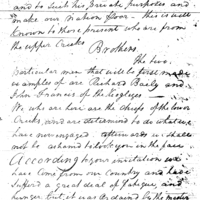 and to suit his private purposes and
make our Nation poor - this is well
known to those present who are from
the upper Creeks
Brothers
The two
particular men that will be first made
examples of are Richard Baily and
John Francis of the
We who are here are the Chiefs of the lower
Creeks who are determined to do what we
have now engaged afterwards we shall
not be ashamed to look you in the face
According to your invitation we
have Come from our Country and have
Suffered a great deal of fatigue and
hunger But it was ordained by the master